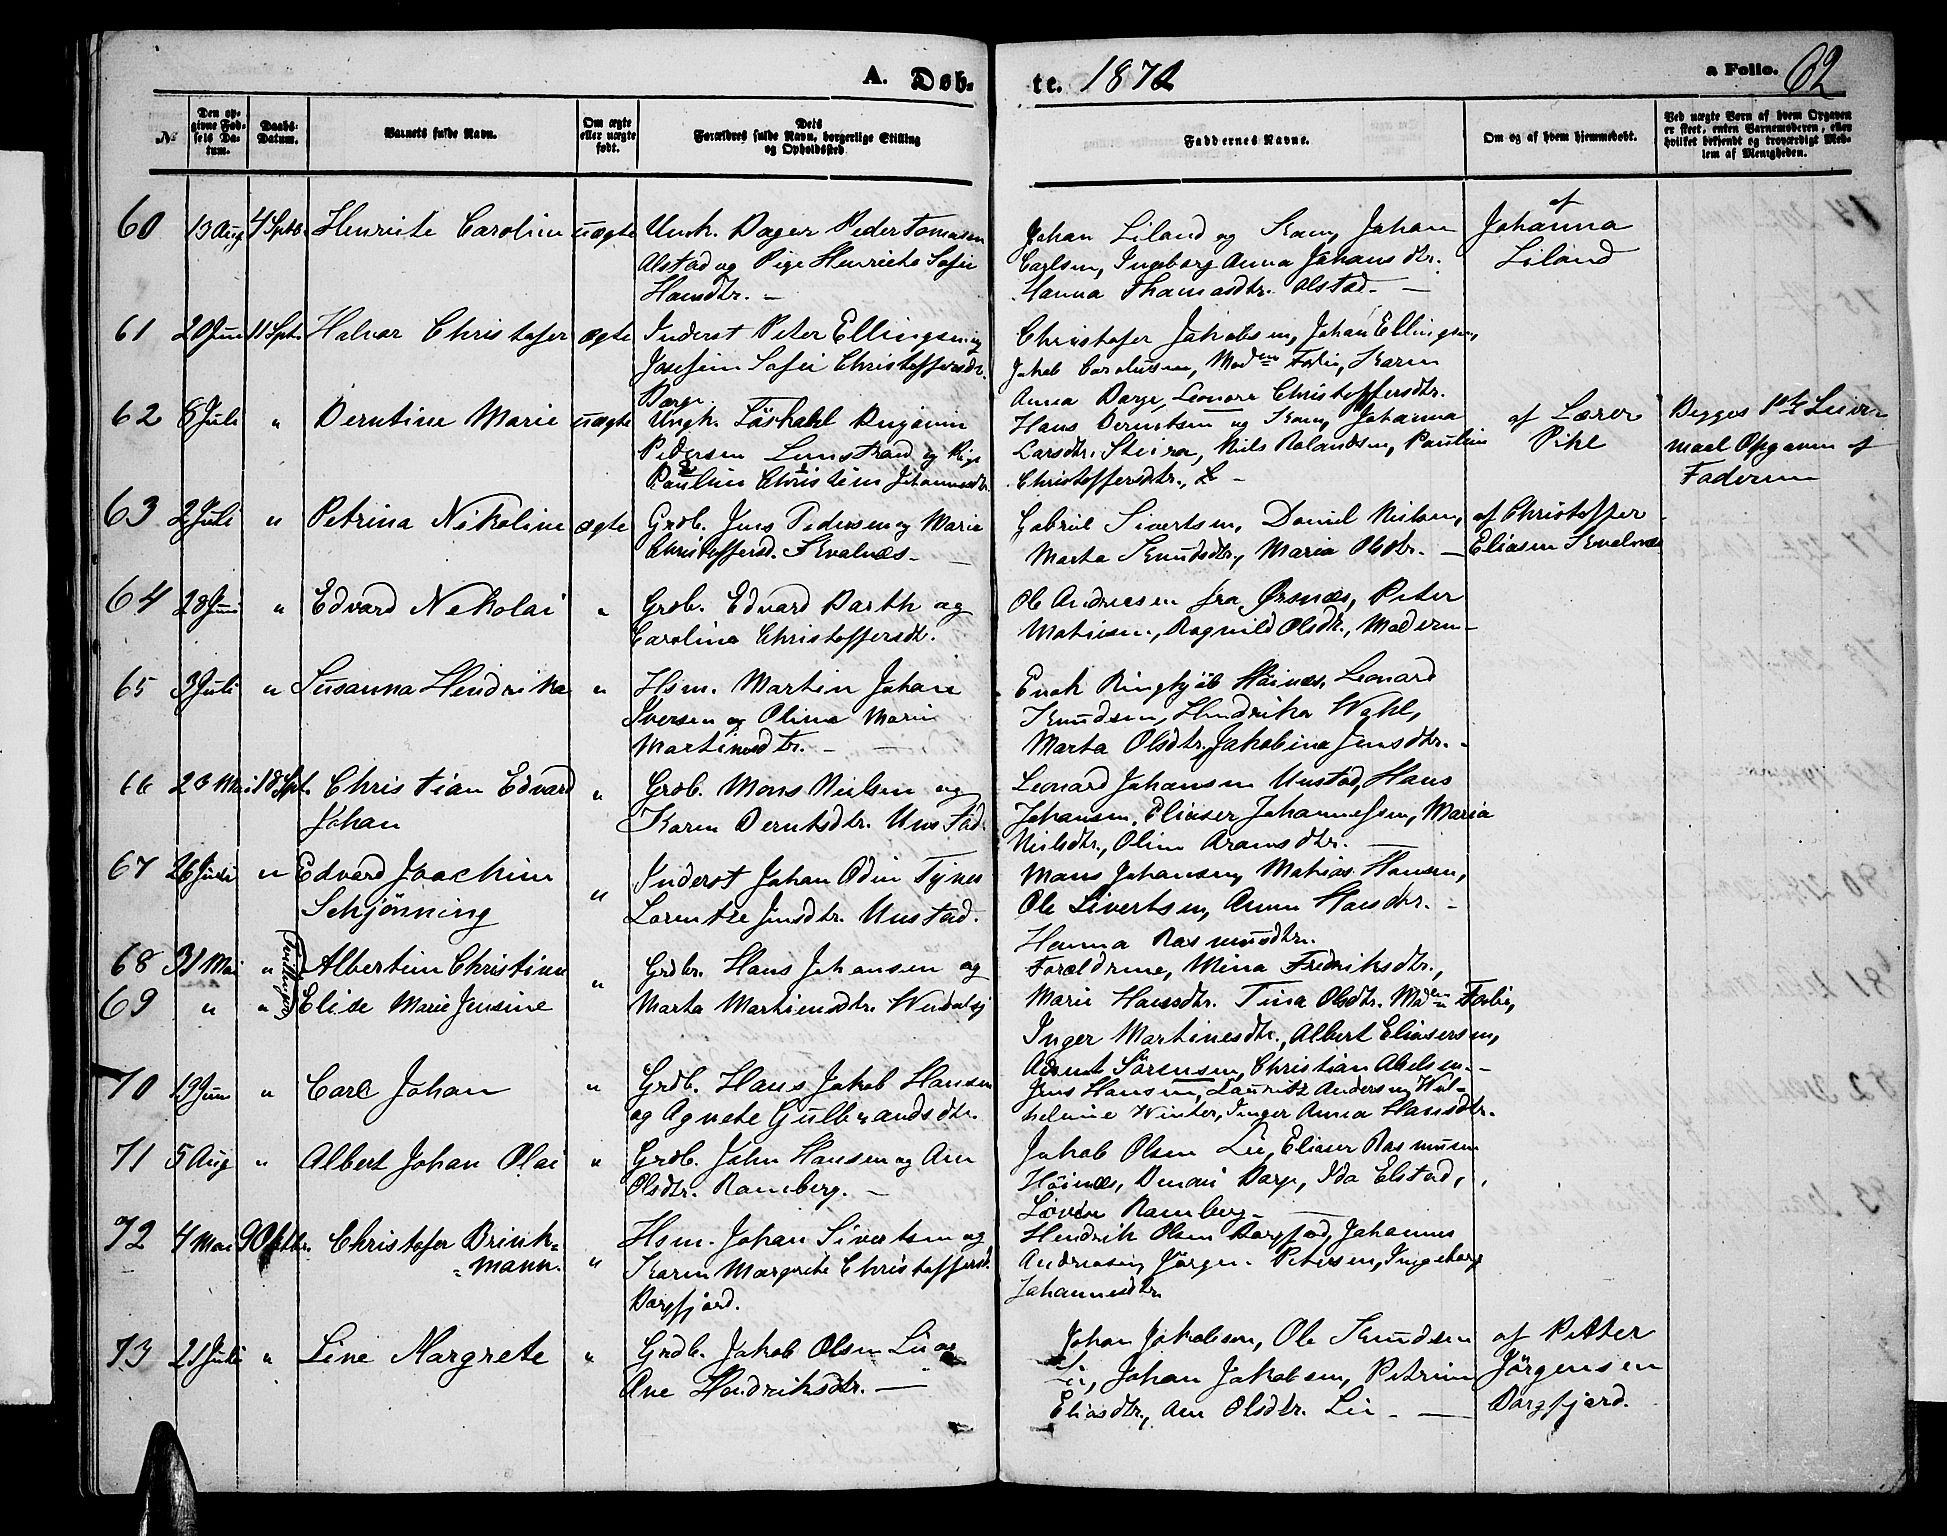 A. Døb-
te. 1870
a Folio. 62
№
Den opgivne Fødsels Datum.
Daabs-Datum.
Barnets fulde Navn.
Om ægte eller uægte født.
Dets Forældres fulde Navn, borgerlige Stilling og Opholdssted
Faddernes Navne.
Om og af hvem hjemmedøbt.
Ved uægte Børn af hvem Opgaven er skeet, enten Barnemoderen, eller hvilket bekjendt og troværdigt Medlem af Menigheden.
60 13 Aug 4 Sptb. Henriete Caroline uægte Unk. Bager Peder Tomasen
Alstad og Pige Henriete Sofie
Hansdtr. —
Johan Liland og Kone, Johan
Carlsen, Ingeborg Anna Johansdtr.
Hanna Thomasdtr. Alstad —
af
Johanna
Liland
61 20 Juni 11 Spt. Halvor Christofer ægte Inderst Peter Ellingsen og
Josefine Sofie Christoffersdtr.
Borge.
Christofer Jakobsen, Johan Ellingsen,
Jakob Carolusen, Mad<sup>m</sup> Forbie, Karen
Anna Borge, Leonore Christoffersdtr.
62 8 Juli " Berntine Marie uægte Ungk. Löskakl Benjamin
Pedersen Lunstrand og Pige
Pauline Christine Johannesdtr.
Hans Berntsen og Kone, Johanna
Larsdtr. Steira, Niels Rolandsen, Pauline
Christoffersdtr., L —
af Lærer
Pihl
Begges 1ste Leier-
maal Opgaven af
Faderen
63 2 Juli " Petrina Nikoline ægte Grdb. Jens Pedersen og Marie
Christoffersd. Kvalnæs —
Gabriel Sivertsen, Daniel Nielsen,
Marta Knudsdtr., Maria Olsdtr. —
af Christoffer
Eliasen Kvalnæs
64 28 Juni " Edvard Nikolai " Grdb. Edvard Barth og
Carolina Christoffersdtr.
Ole Andreasen fra Ørsnæs, Peter
Mathisen, Ragnild Olsdtr., Moderen —
65 3 Juli " Susanna Hendrika " Hsm. Martin Johan
Iversen og Oline Marie
Martinusdtr. —
Enok Ringkjöb Höinæs, Leonard
Knudsen, Hendrika Wahl,
Marta Olsdtr, Jakobina Jensdtr. -
66 26 Mai 18 Spt. Christian Edvard
Johan " Grdb. Mons Nielsen og
Karen Berntsdtr. Unstad.
Leonard Johansen Unstad, Hans
Johansen, Elieser Johannessen, Maria
Nielsdtr., Oline Aronsdtr. —
67 26 Juni " Edvard Joachim
Schjönning " Inderst Johan Odin Tynes
Lorentze Jensdtr. Unstad.
Mons Johansen, Mathias Hansen,
Ole Sivertsen, Anna Hansdtr. -
Hanna Rasmusdtr.
68 31 Mai " Tvillinger Albertine Christine " Grdbr. Hans Johansen og
69 " " Elise Marie Jensine Marta Martinusdtr.
Forældrene, Mina Fredriksdtr.,
Marie Hansdtr. Tina Olsdtr. Mad<sup>m</sup> Forbie,
Inger Martinesdtr., Albert Eliesersen,
Sörensen, Christian Abelsen —
70 19 Juni " Carl Johan " Grdb. Hans Jakob Hansen
og Agnete Gulbrandsdtr.
Jens Hansen, Lauritz Andersen, Wil-
helmine Winter, Inger Anna Hansdtr.
71 5 Aug " Albert Johan Olai " Grdb. John Hansen og Ane
Olsdtr. Ramberg. —
Jakob Olsen Lie, Elieser Rasmusen
Höinæs, Benoni Borge, Ida Elstad,
Lovise Ramberg —
72 4 Mai 9 Oktbr. Christofer Brink=
=mann. " Hsm. Johan Sivertsen og
Karen Margrete Christoffersd.
Borgfjord.
Hendrik Olsen Borgfjord, Johannes
Andreasen, Jörgen Petersen, Ingeborg
Johannesdtr.
73 21 Juli " Line Margrete " Grdb. Jakob Olsen Lie og
Ane Hendriksdtr. —
Johan Jakobsen, Ole Knudsen
Lie, Johan Jakobsen, Petrine
Eliasdtr., Ane Olsdtr. Lie —
af Petter
Jörgensen
Borgfjord.